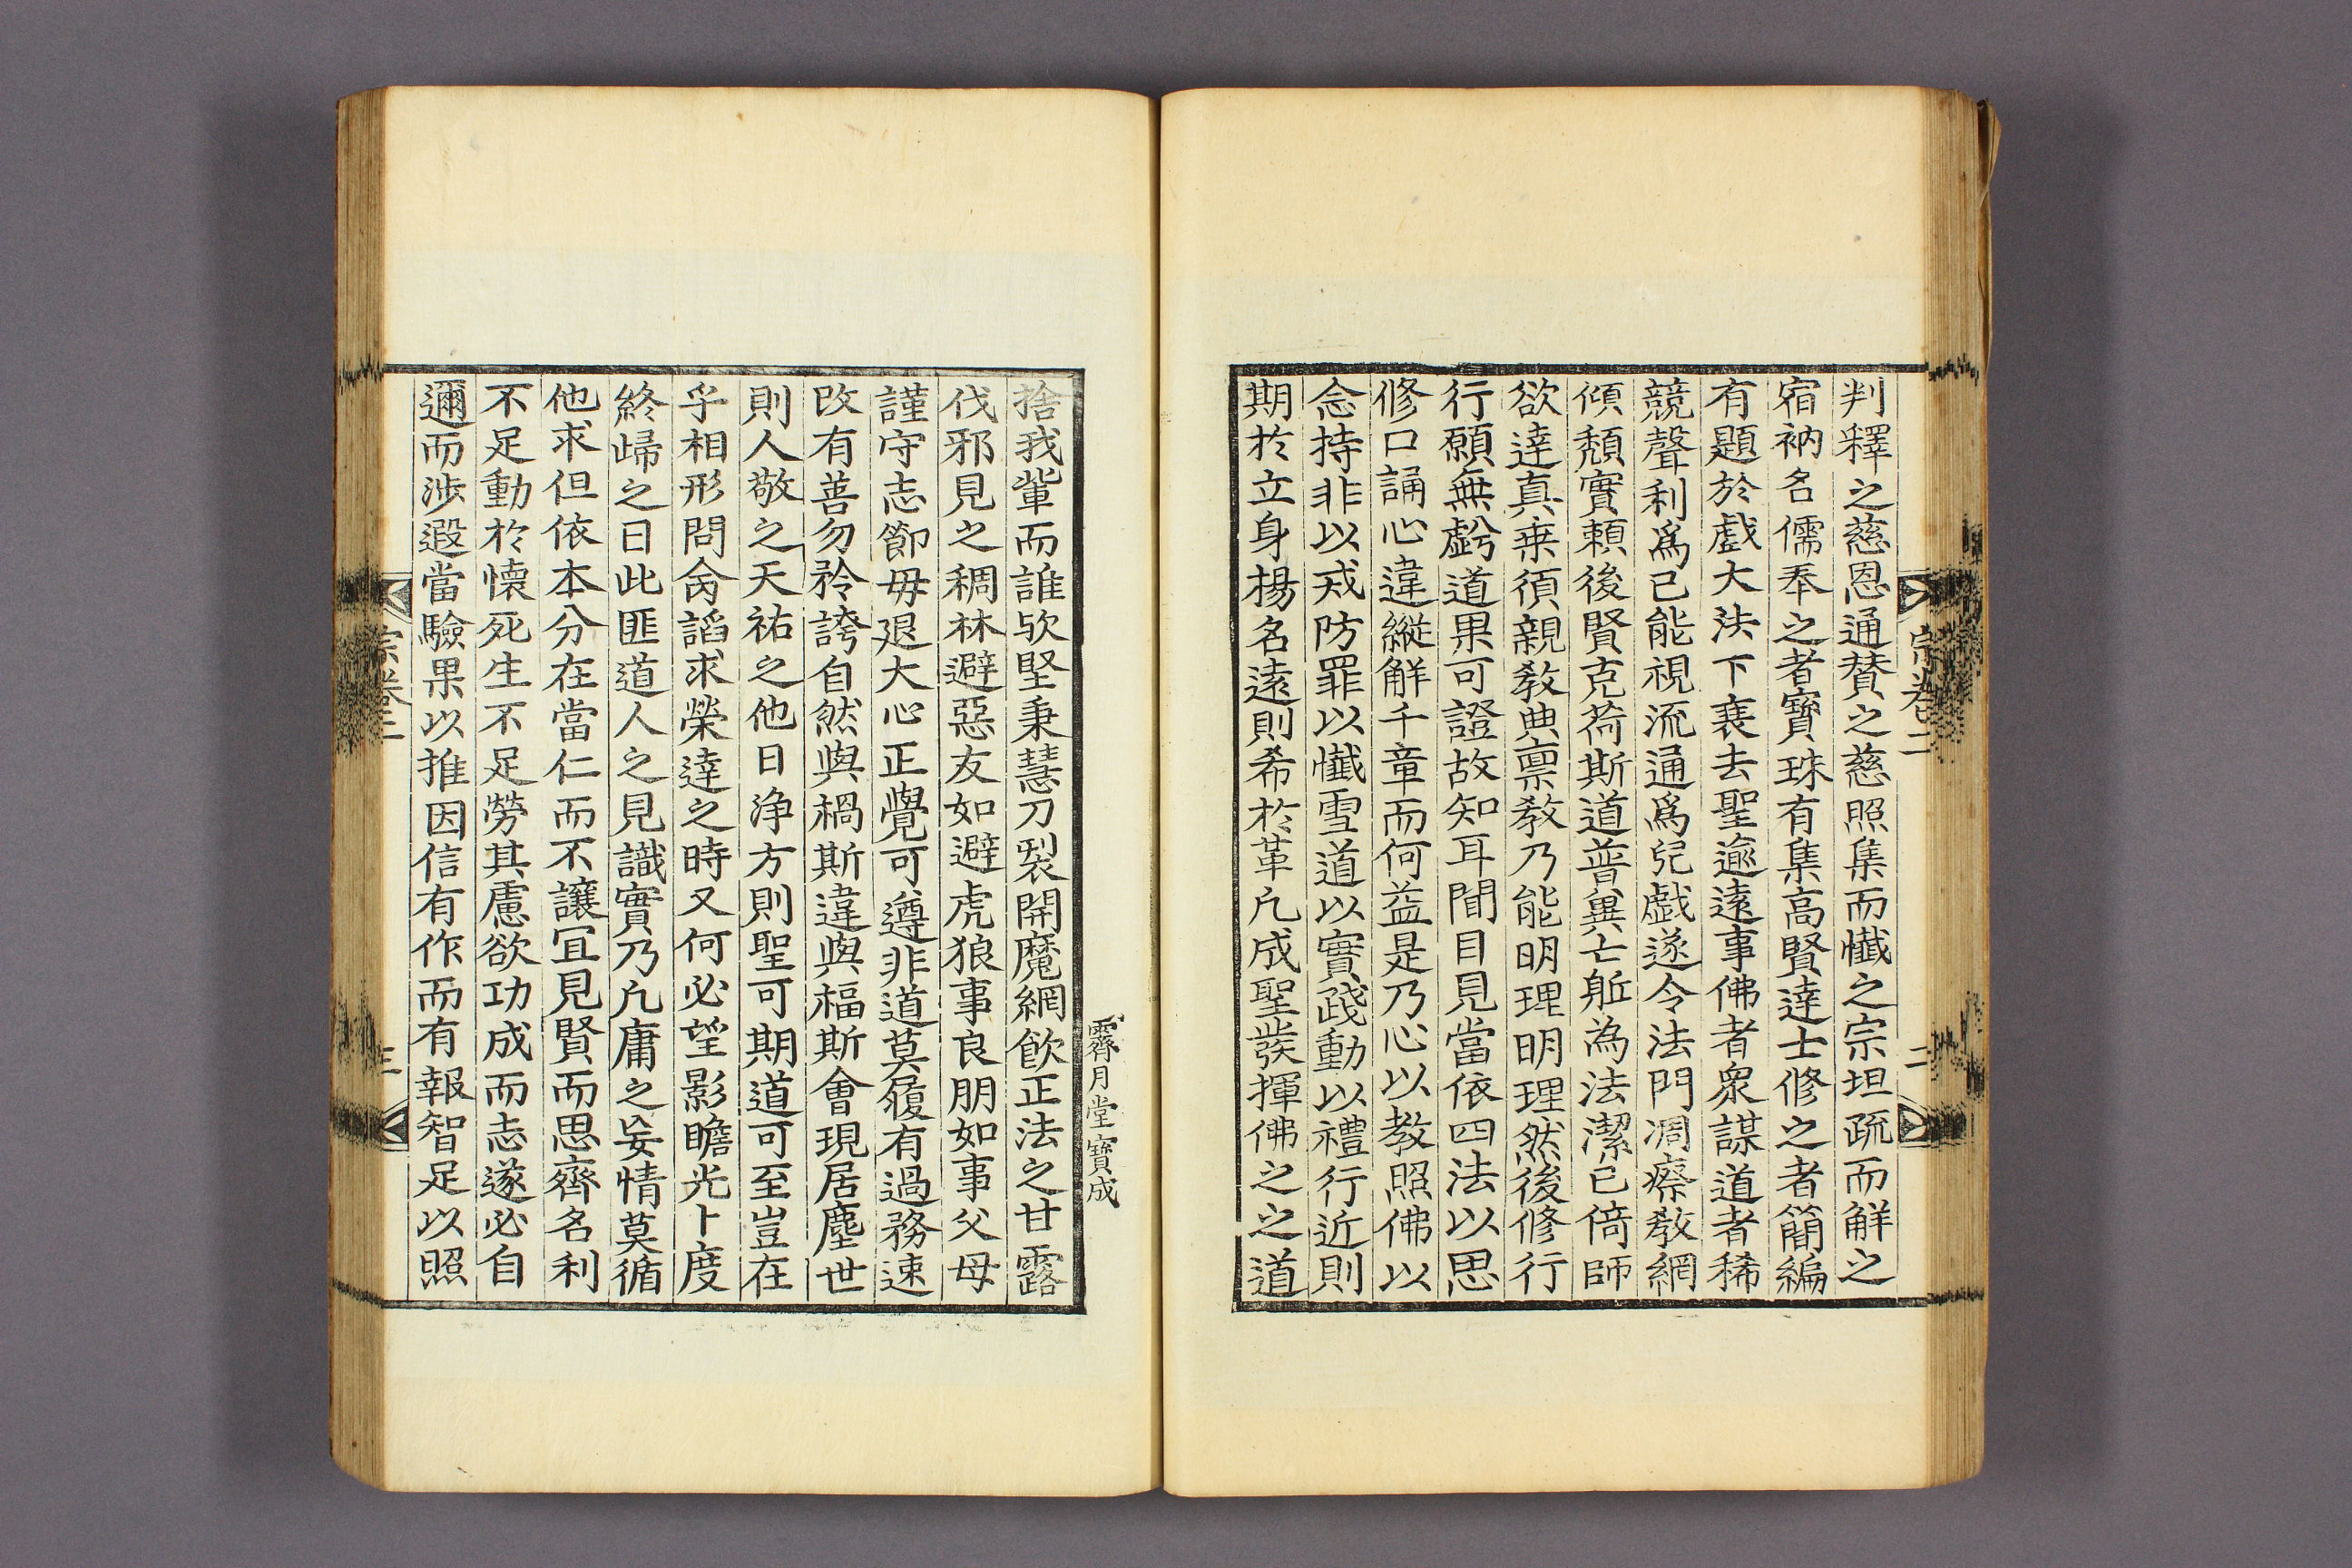 判釋之慈恩通賛之慈照集而懺之宗坦疏而觧之
宿衲名儒奉之者寶珠有集高賢達士修之者簡編
有題於戲大法下衰去聖逾遠事佛者衆謀道者稀
競聲利爲已能視流通爲兒戲遂令法門凋瘵教網
傾頽實頼後賢克荷斯道普兾亡躯為法潔已倚師
欲達真乗須親教典禀教乃能明理明理然後修行
行願無虧道果可證故知耳聞目見當依四法以思
修口誦心違縱觧千章而何益是乃心以教照佛以
念持非以戒防罪以懺雪道以實踐動以禮行近則
期扵立身揚名遠則希扵革凡成聖發揮佛之之道
宗卷二
二
霽月堂寶成
捨我軰而誰欤堅秉慧刀裂開魔網飲正法之甘露
伐邪見之稠林避惡友如避虎狼事良朋如事父母
謹守志節毋退大心正覺可遵非道莫履有過務速
改有善勿矜誇自然與禍斯違與福斯會現居塵世
則人敬之天祐之他日浄方則聖可期道可至豈在
乎相形問命諂求榮達之時又何必望影瞻光卜度
終歸之日此匪道人之見識實乃凡庸之妄情莫循
他求但依本分在當仁而不讓冝見賢而思齊名利
不足動扵懐死生不足勞其慮欲功成而志遂必自
邇而涉遐當驗果以推因信有作而有報智足以照
宗卷二
三